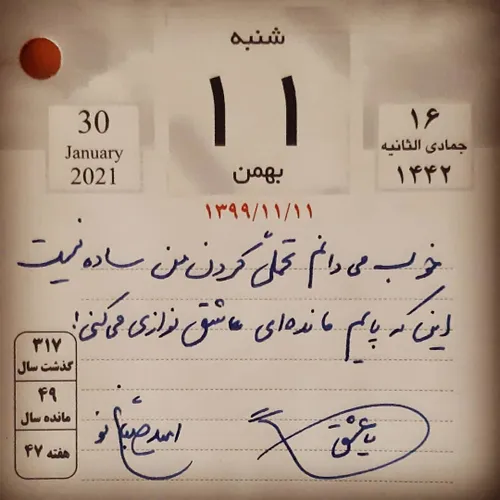 شنبه
۱۱
بهمن
30
January
2021
۱۶
جمادی الثانیه
۱۴۴۲
۱۳۹۹/۱۱/۱۱
خوب می دانم تحمّل کردن من ساده نیست
این که پایم مانده‌ای عاشق نوازی می‌کنی!
۳۱۷
گذشت سال
۴۹
مانده سال
هفته ۴۷
با عشق
امید صباغ نو